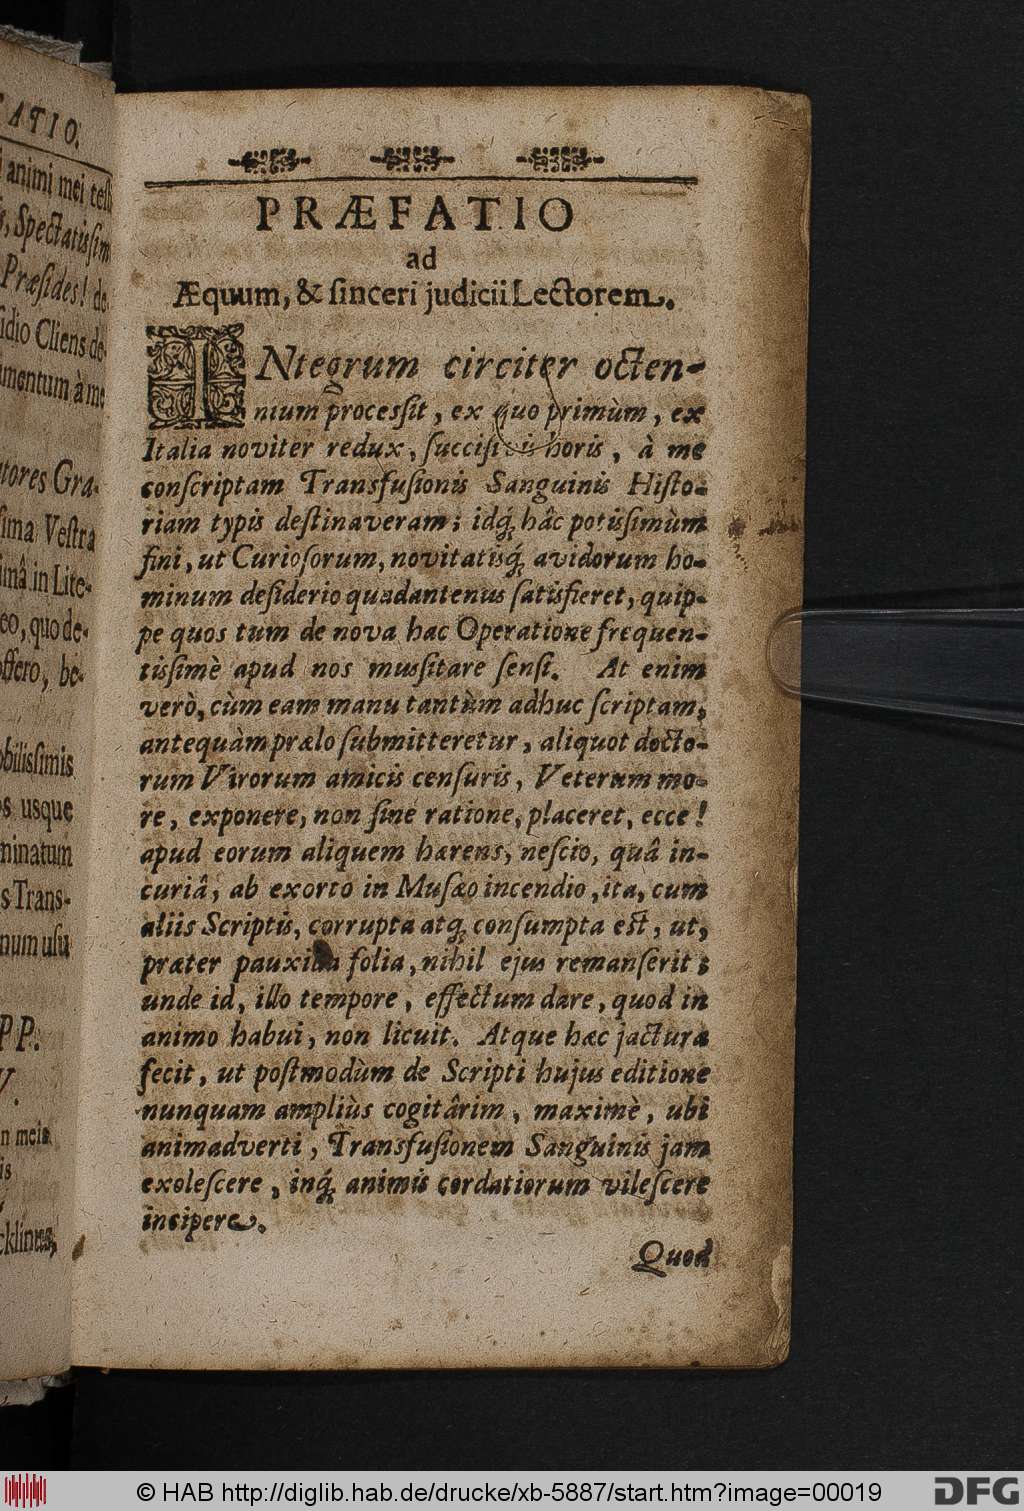 ATIO.
animi mei test
Spectatissim
Præsides! de
sidio Cliens de-
mentum à me
tores Gra-
sima Vestra
imâ in Lite-
eo, quo de-
offero, be-
obilissimis
os usque
minatum
s Trans-
num usu
PP.
V.
n meis
is
cklinus,
PRÆFATIO
ad
Æquum, & ſinceri judicii Lectorem.
INtegrum circiter octen-
nium proceſſit, ex quo primùm, ex
Italia novìter redux, ſucciſivis horis, à me
conſcriptam Transfuſionis Sanguinis Hiſto-
riam typis deſtinaveram; idq́; hâc potiſſimùm
fini, ut Curioſorum, novitatisq́; avidorum ho-
minum deſiderio quadantenus ſatisfieret, quip-
pe quos tum de nova hac Operatione frequen-
tiſſimè apud nos muſſitare ſenſi. At enim
verò, cùm eam manu tantùm adhuc ſcriptam,
antequàm prælo ſubmitteretur, aliquot docto-
rum Virorum amicis cenſuris, Veterum mo-
re, exponere, non ſine ratione, placeret, ecce!
apud eorum aliquem hærens, neſcio, quâ in-
curiâ, ab exorto in Muſæo incendio, ita, cum
aliis Scriptis, corrupta atq; conſumpta eſt, ut,
præter pauxilla folia, nihil ejus remanſerit;
unde id, illo tempore, effectum dare, quod in
animo habui, non licuit. Atque hæc jactura
fecit, ut poſtmodùm de Scripti hujus editione
nunquam ampliùs cogitârim, maximè, ubi
animadverti, Transfuſionem Sanguinis jam
exoleſcere, inq́; animis cordatiorum vileſcere
incipere.
Quod
© HAB http://diglib.hab.de/drucke/xb-5887/start.htm?image=00019
DFG